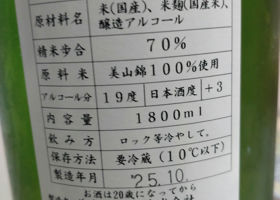 原材料名 米(国産)、米麹(国産米)、
醸造アルコール
精米歩合 70%
原料米 美山錦100%使用
アルコール分 19度 日本酒度 +3
内容量 1800ml
飲み方 ロック等冷やして。
保存方法 要冷蔵(10℃以下)
製造年月 '25.10.
お酒は20歳になってから